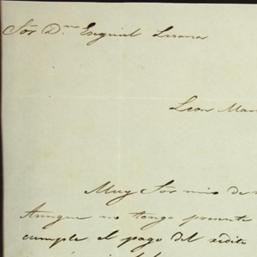 Sōr Dⁿ Esequiel Lisana
Leon Mar
Muy Sor mio de
Aunque no tengo presente
cumple el pago del rédito